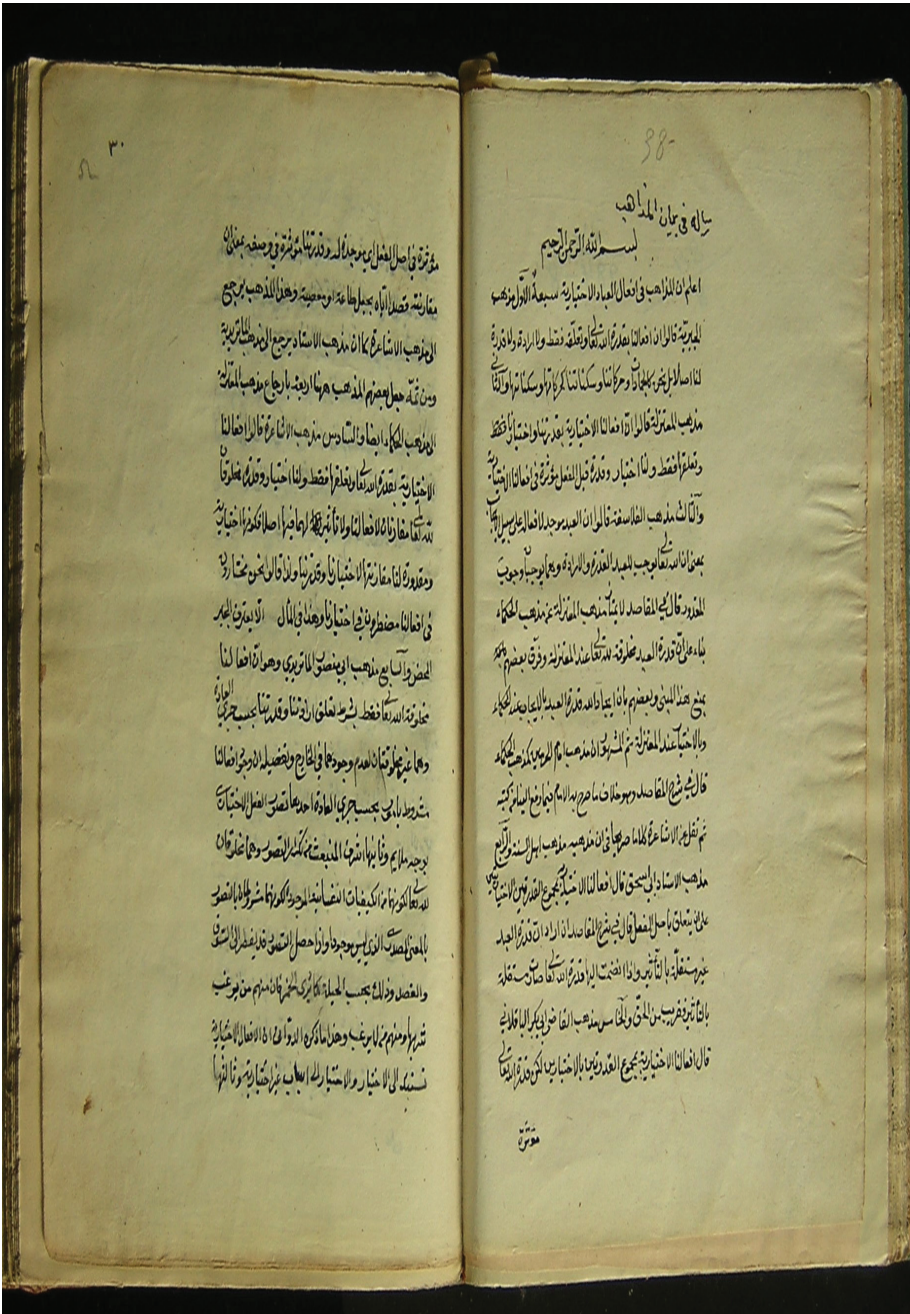 98-
رساله في بيان المذاهب
بسم الله الرحمن الرحيم
اعلم ان المذاهب في افعال العباد الاختيارية سبعة الأول مذهب
الجبرية قالوا ان افعالنا بقدرة الله تعا وتعلقه فقط ولا ارادة ولا قدرة
لنا اصلا بل نحن كالجمادات وحركاتنا وسكناتنا كحركاتها وسكناتها والثاني
مذهب المعتزلة قالوا ان افعالنا الاختيارية بقدرتنا واختيارنا فقط
وتعلقها فقط ولنا اختيار وقدرة قبل الفعل مؤثرة في افعالنا الاختيارية
والثالث مذهب الفلاسفة قالوا ان العبد موجد لافعاله على سبيل الايجاب
بمعنى ان الله تعا يوجب للعبد القدرة والارادة وهما يوجبان وجوب
المقدور قال في المقاصد لا يتميز مذهب المعتزلة عن مذهب الحكماء
بناء على ان قدرة العبد مخلوقة لله تعا عند المعتزلة وفرق بعضهم
بمنع هذا المبنى وبعضهم بان ايجاد الله قدرة العبد بالايجاب عند الحكماء
وبالاختيار عند المعتزلة ثم المشهور ان مذهب امام الحرمين كمذهب الحكماء
قال في شرح المقاصد وهو خلاف ما صرح به الامام فيما وقع الينا من كتبه
ثم نقل عن الاشاعرة كلاما صريحا في ان مذهبه مذهب اهل السنة والرابع
مذهب الاستاذ ابي اسحق قال افعالنا الاختيارية بمجموع القدرتين والاختيارين
على ان يتعلق باصل الفعل قال في شرح المقاصد ان اراد ان قدرة العبد
غير مستقلة بالتأثير واذا انضمت اليها قدرة الله تعا صارت مستقلة
بالتاثير فقريب من الحق والخامس مذهب القاضي ابي بكر الباقلاني
قال افعالنا الاختيارية بمجموع القدرتين بالاختيارين لكن قدرة الله تعالى
مؤثرة
٣٠
مؤثرة في اصل الفعل اي موجدة له وقدرتنا مؤثرة في وصفه بمعنى ان
مقارنة قصدنا اياه يجعل طاعة او معصية وهذا المذهب يرجع
الى مذهب الاشاعرة كما ان مذهب الاستاد يرجع الى مذهب الماتريدية
ومن ثمة جعل بعضهم المذهب ههنا اربعة بارجاع مذهب المعتزلة
الى مذهب الحكماء ايضا والسادس مذهب الاشاعرة قالوا افعالنا
الاختيارية بقدرة الله تعا وتعلقها فقط ولنا اختيار وقدرة مخلوقان
لله تعا مقارنان لافعالنا ولا تأثير لهما فيها اصلا فكونها اختيارية
ومقدورة لنا مقارنتها لاختيارنا وقدرتنا ولذا قالوا نحن مختارون
في افعالنا مضطرون في اختيارنا وهذا في المآل لا يفترق الجبر
المحض والسابع مذهب ابي منصور الماتريدي وهو ان افعالنا
مخلوقة الله تعا فقط بشرط تعلق ارادتنا وقدرتنا بحسب جري العادة
وهما غير مخلوقتان لعدم وجودهما في الخارج وتفصيله ان وجود افعالنا
مشروط بامور بحسب جري العادة احدها تصور الفعل الاختياري
بوجه ملايم وثانيها الشوق المنبعث من ذلك التصور وهما مخلوقان
لله تعا لكونهما من الكيفيات النفسانية الموجودة لكونهما مشروطان بالتصور
بالمعنى المصدري الذي ليس بموجود واذا حصل التصور قد يفضي الى الشوق
والقصد وذلك بحسب الجبلة كما ترى الخمر فان منهم من يرغب
شربها ومنهم من لا يرغب وهذا ما ذكره الدواني من ان الافعال الاختيارية
تستند الى الاختيار والاختيار الى اسباب غير اختيارية وثالثها